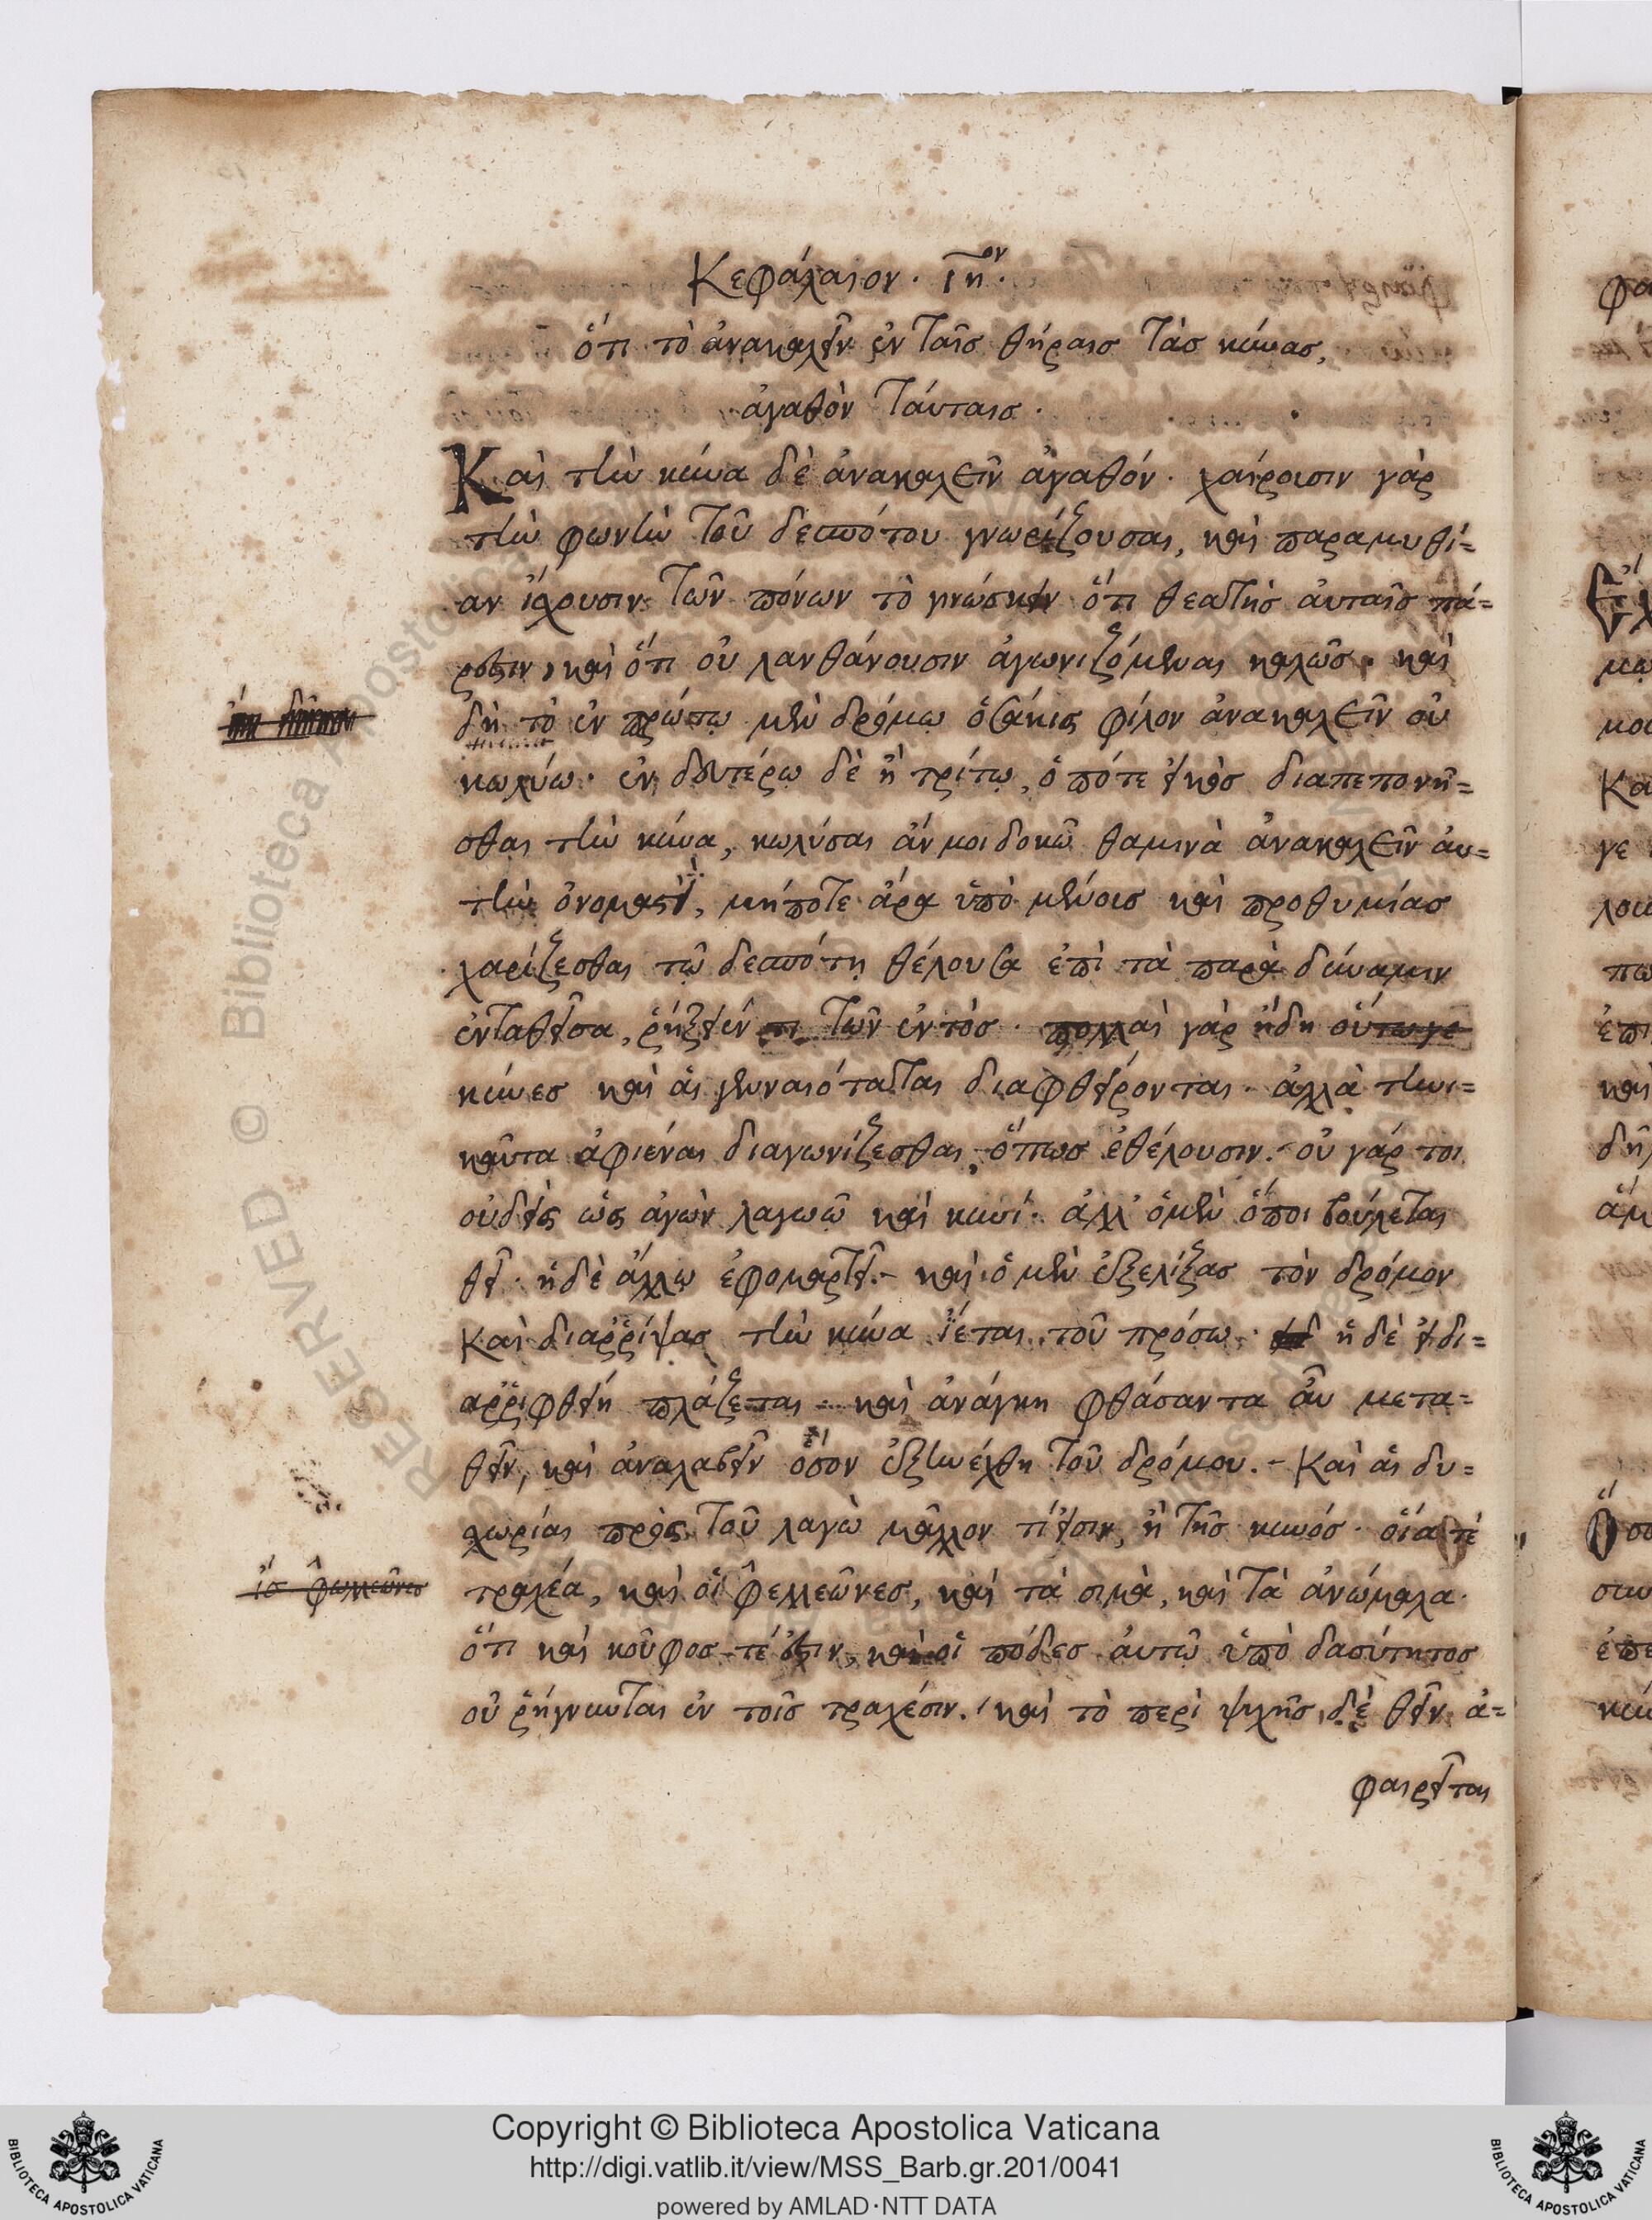 Κεφάλαιον. ιη ον.
ὅτι τὸ ἀνακαλεῖν ἐν ταῖς θήραις τὰς κύνας,
ἀγαθὸν ταύταις.
Καὶ τὴν κύνα δὲ ἀνακαλεῖν ἀγαθόν. χαίροισιν γὰρ
τὴν φωνὴν τοῦ δεσπότου γνωρίζουσαι, καὶ παραμυθί=
αν ἴσχουσιν τῶν πόνων τὸ γνώσκειν ὅτι θεατὴς ἀυταῖς πά=
ρεστιν, καὶ ὅτι οὐ λανθάνουσιν ἀγωνιζόμεναι καλῶς. καὶ
δὴ τὸ ἐν πρώτῳ μὲν δρόμῳ ὁσάκις φίλον ἀνακαλεῖν οὐ
κωλύω. ἐν δευτέρω δὲ ἢ τρίτῳ, ὁπότε εἰκὸς διαπεπονῆ=
σθαι τὴν κύνα, κωλύσαι ἄν μοι δοκῶ θαμινὰ ἀνακαλεῖν ἀυ=
τὴν ὀνομαστὶ, μήποτε ἄρα ὑπὸ μένοις καὶ προθυμίας
χαρίζεσθαι τῷ δεσπότῃ θέλουσα ἐπὶ τὰ παρὰ δύναμιν
ἐνταθεῖσα, ῥήξειέν τι τῶν ἐντός. πολλαὶ γὰρ ἤδη οὕτω γε
κύνες καὶ αἱ γενναιόταται διαφθείρονται. ἀλλὰ τηνι=
καῦτα ἀφιέναι διαγωνίζεσθαι, ὅπως ἐθέλουσιν. οὐ γάρ τοι
οὐδεὶς ὡς ἀγὼν λαγωῶ καὶ κυνί. ἀλλ' ὁ μὲν ὅποι βούλεται
θεῖ. ἡ δὲ ἄλλῳ ἐφομαρτεῖ. καὶ ὁ μὲν ἐξελίξας τὸν δρόμον
καὶ διαῤῥίψας τὴν κύνα ἵεται τοῦ πρόσω. ἡ δὲ εἰ δι=
αῤῥιφθείη πλάζεται. καὶ ἀνάγκη φθάσαντα ἂυ μετα=
θεῖν, καὶ ἀναλαβεῖν ὅσον ἐξηνέχθη τοῦ δρόμου. Καὶ αἱ δυ=
χωρίαι πρὸς τοῦ λαγὼ μᾶλλον τί εἰσιν, ἢ τῆς κυνός. οἷα τέ
τραχέα, καὶ οἱ φελλεῶνες, καὶ τὰ σιμὰ, καὶ τὰ ἀνώμαλα.
ις φωλλεῶνες
ὅτι καὶ κοῦφος τέ ἐστιν, καὶ οἱ πόδες ἀυτῶ ὑπὸ δασύτητος
οὐ ῥήγνυνται ἐν τοῖς τραχέσιν. καὶ τὸ περὶ ψυχῆς δὲ θεῖν ἀ=
φαιρεῖται
Copyright © Biblioteca Apostolica Vaticana
http://digi.vatlib.it/view/MSS_Barb.gr.201/0041
powered by AMLAD·NTT DATA